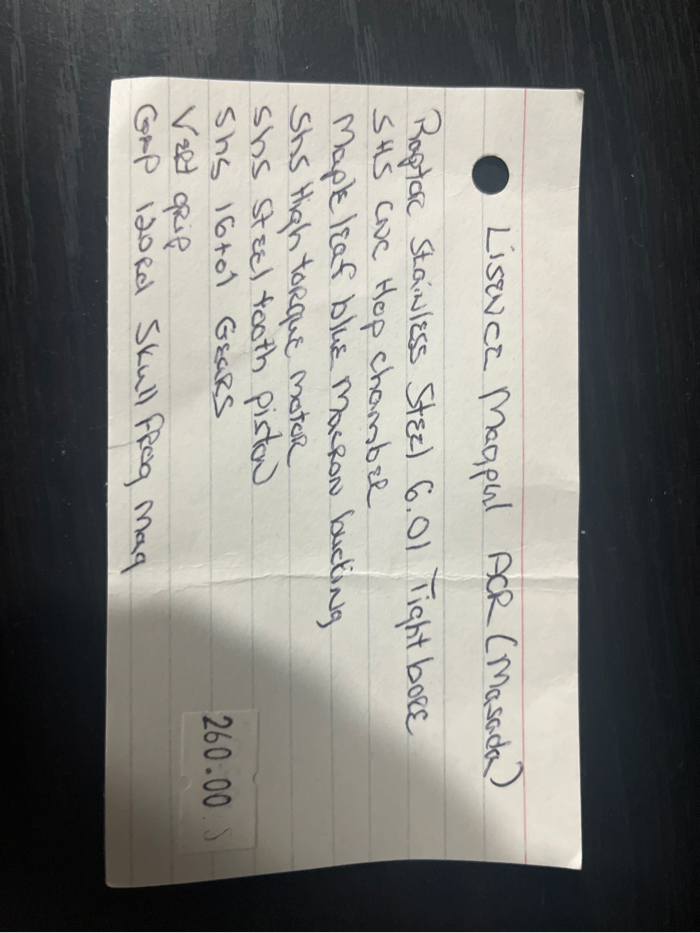 Lisence Magpul ACR (Masada)
Raptor Stainless Steel 6.01 Tight bore
SHS CNC Hop chamber
Maple leaf blue Macron bucking
Shs High torque motor
Shs Steel tooth piston
Shs 16to1 Gears
Vert grip
G&P 120rd Skull Frog Mag
260.00